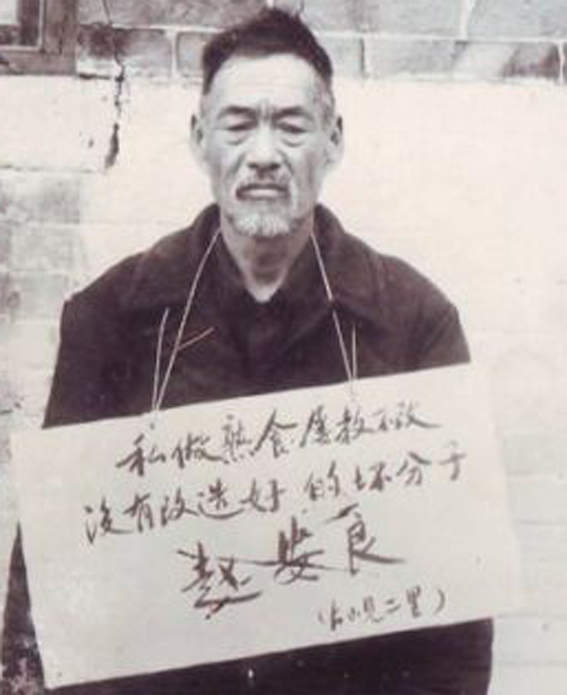 私做熟食屡教不改
没有改造好的坏分子
赵 良
二里)